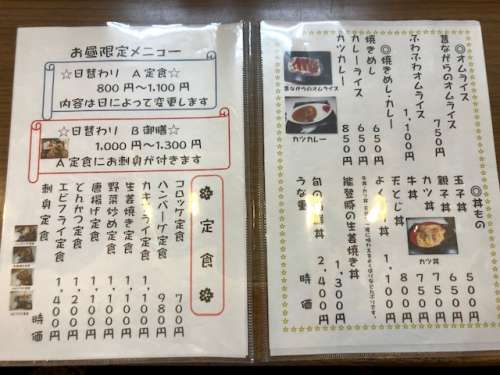 お昼限定メニュー
☆日替わり A定食☆
800円〜1,100円
内容は日によって変更します
☆日替わり B御膳☆
1,000円〜1,300円
A定食にお刺身が付きます
定食
コロッケ定食 700円
ハンバーグ定食 980円
カキフライ定食 1,100円
生姜焼き定食 1,100円
野菜炒め定食 1,100円
唐揚げ定食 1,100円
とんかつ定食 1,200円
エビフライ定食 1,400円
刺身定食 時価
◎オムライス
昔ながらのオムライス 750円
ふわふわオムライス 1,100円
◎焼きめし・カレー
焼きめし 650円
カレーライス 650円
カツカレー 850円
昔ながらのオムライス
カツカレー
◎丼もの
玉子丼 500円
親子丼 650円
カツ丼 750円
牛丼 750円
天とじ丼 800円
よくばり丼 1,100円
能登豚の生姜焼き丼 1,300円
旬の海鮮丼 2,400円
うな重 時価
カツ丼